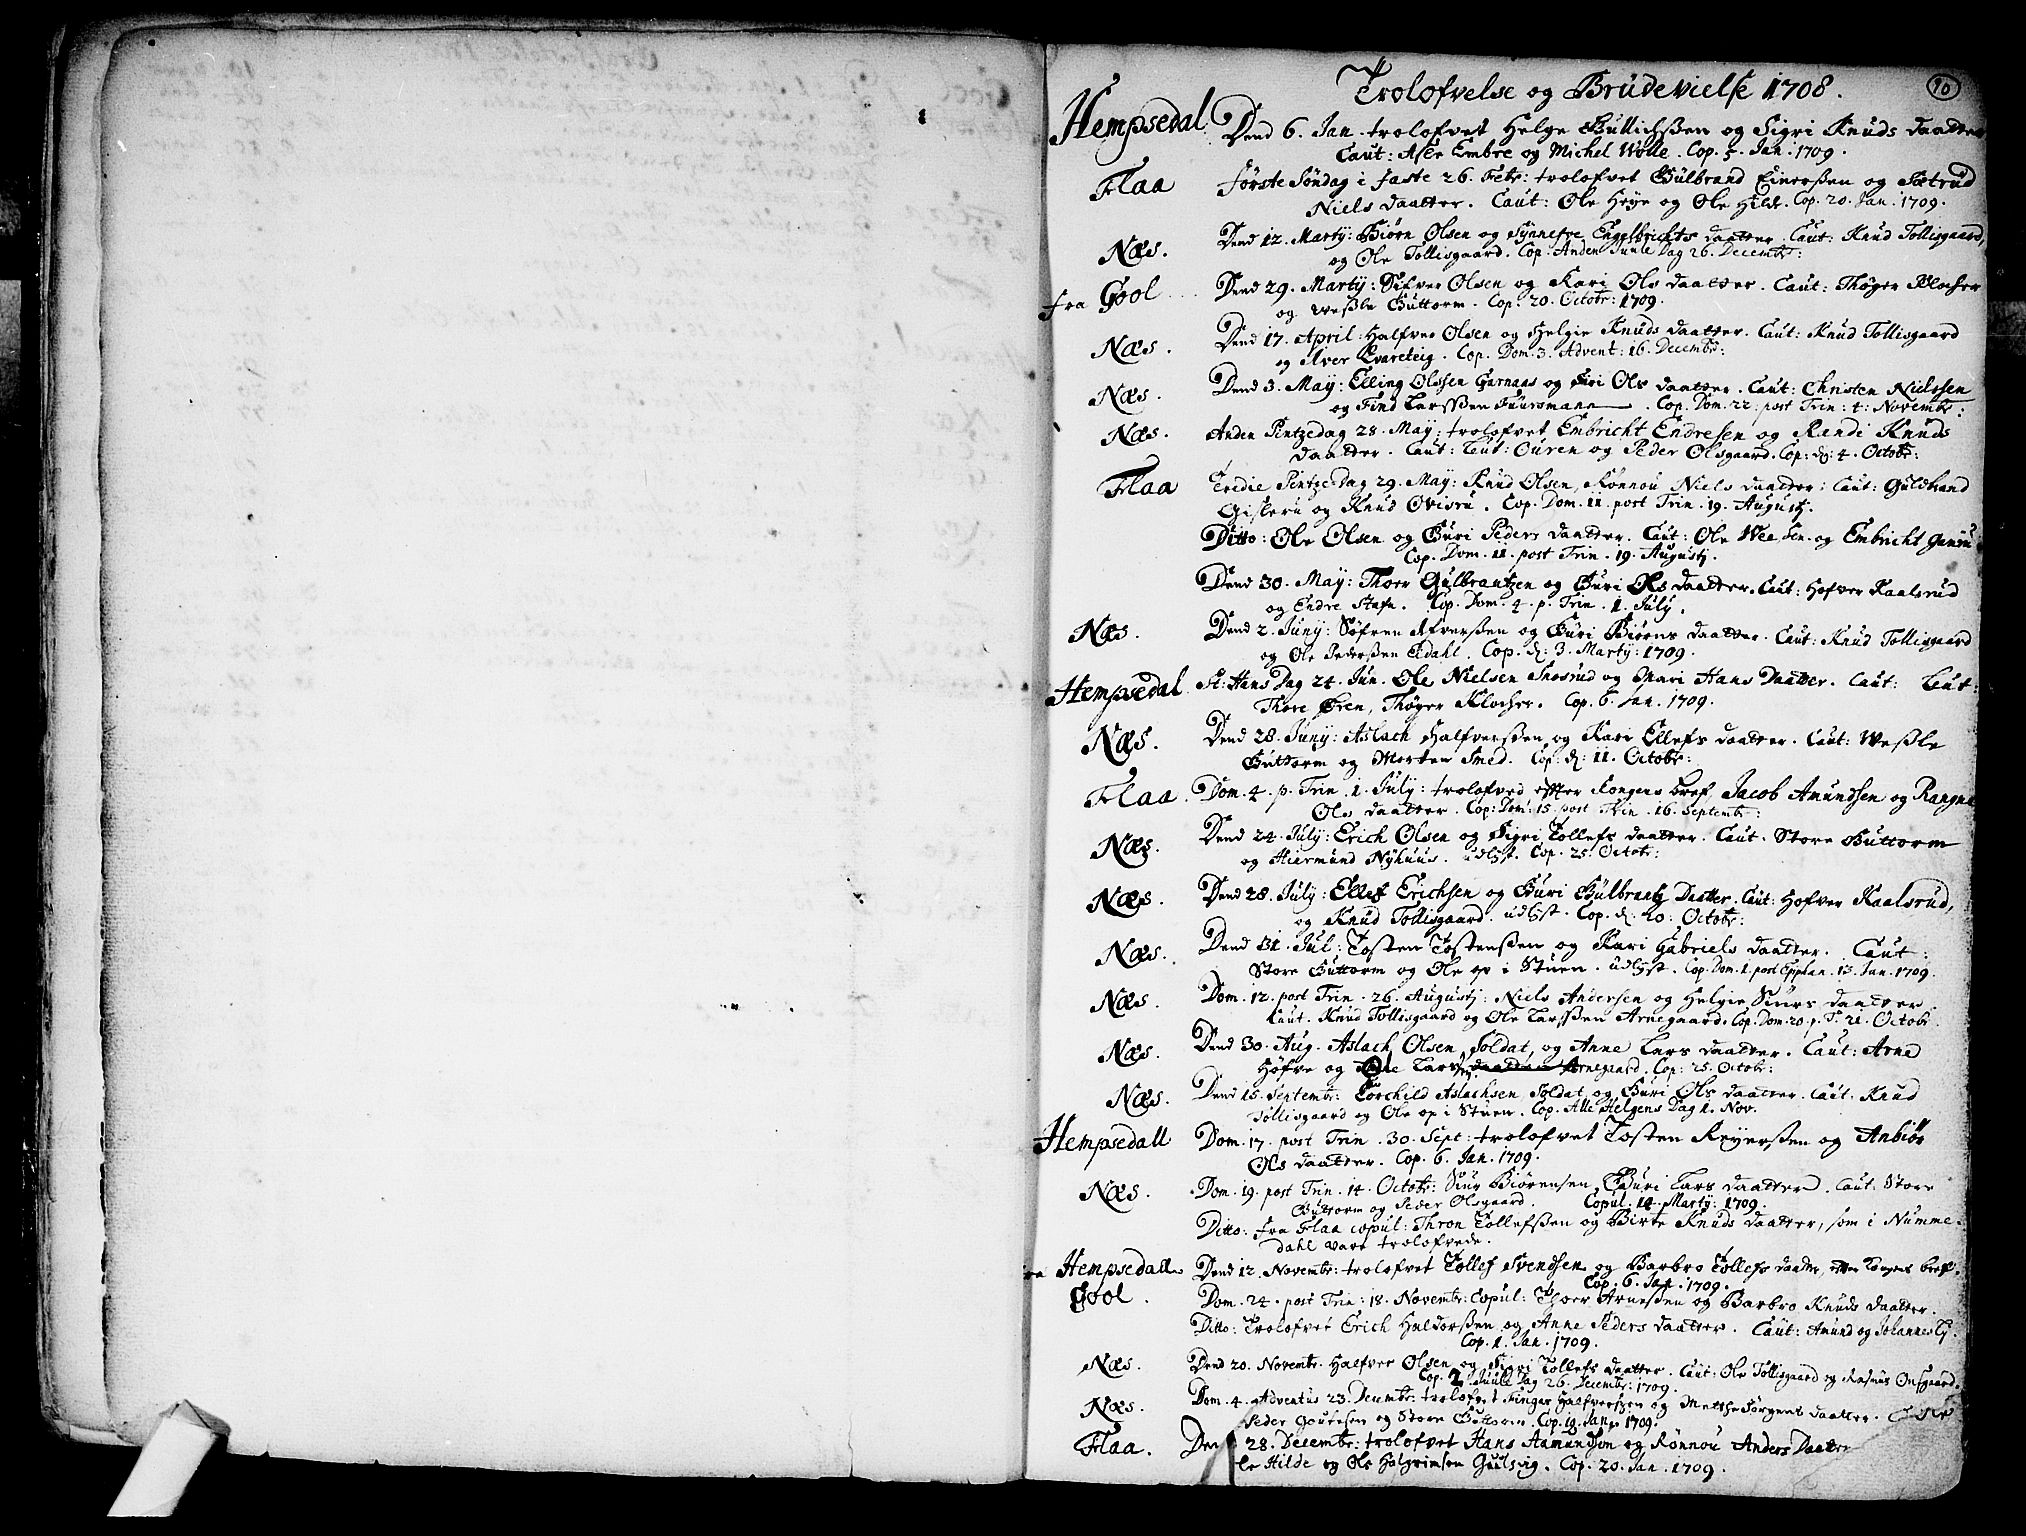 Trolofvelse og Brudevielse 1708.
10
Hempsedal. Dend 6. Jan. trolofvet Helge Gullichsßen og Sigri Knuds daatter
Caut: Asle Embre og Michel Wølle. Cop. 5. Jan. 1709.
Flaa Første Søndag i faste 26. Febr: trolofvet Gulbrand Einersßen og
Niels daatter. Caut: Ole Høye og Ole Hilde. Cop. 20. Jan. 1709.
Næs. Dend 12. Martij: Biørn Olsen og Synnefve Engelbrichts daatter. Caut: Knud Tollisgaard,
og Ole Tollisgaard. Cop. Anden Juule Dag 26. Decembr:
fra Gool Dend 29. Martij: Sifver Olsen og Kari Ols daatter. Caut: Thøger Klocher
og Weßle Guttorm. Cop. 20. Octobr: 1709.
Næs. Dend 17. April: Halfver Olsen og Helgie Knuds daatter. Caut: Knud Tollisgaard
og Iver Qvareteig. Cop. Dom. 3. Advent: 16. Decembr:
Næs. Dend 3. Maÿ: Elling Olssen Garnaas og Guri Ols daatter. Caut: Christen Nielssen
og Find Larsßen Fuursmann. Cop. Dom. 22. post Trin: 4. Novembr:
Næs. Anden Pintzedag 28. Maÿ: trolofvet Embricht Endresen og Randi Knuds
daatter. Caut: Caut: Ouren og Peder Olsgaard. Cop: d: 4. Octobr:
Flaa Tredie Pintzedag 29. Maÿ: Knud Olsen, Rønnou Niels daatter: Caut: Guldbrand
Gisleru og Knud Ovisru. Cop. Dom. 11. post Trin. 19. Augustj.
Ditto: Ole Olsen og Guri Peders daatter. Caut: Ole Wee Sen. og Embricht
Cop. Dom. 11. post Trin. 19. Augustj.
Dend 30. Maÿ: Thoer Gulbrantzen og Guri Ols daatter. Caut: Hofver Kaalsrud
og Endre Stafn. Cop. Dom. 4. p. Trin. 1. Julÿ.
Næs. Dend 2. Junÿ: Søfren Afversßen og Guri Biørns daatter. Caut: Knud Tollisgaard
og Ole Pedersßen Eidahl. Cop. d: 3. Martij: 1709.
Hempsedal St: Hans Dag 24. Jun. Ole Nielsen Snosrud og Mari Hans Daatter. Caut: Leut:
Thore Øren, Thøger Klocher. Cop. 6. Jan. 1709.
Næs. Dend 28. Junÿ: Aslach Halfversßen og Kari Ellefs daatter. Caut: Weßle
Guttorm og Morten Smed. Cop: d: 11. Octobr:
Flaa. Dom. 4. p. Trin. 1. Julÿ: trolofved effter Kongens bref, Jacob Amundsen og
Ols daatter. Cop: Dom: 15. post Trin. 16. Septembr:
Næs. Dend 24. Julÿ: Erich Olsen og Sigri Tollefs daatter. Caut: Store Guttorm
og Hiermund Nyhuus. udlyst. Cop. 25. Octobr:
Næs. Dend 28. Julÿ: Ellef Erichsen og Guri Gulbrantz Daatter. Caut: Hofver Kaalsrud,
og Knud Tollisgaard. udlyst. Cop. d. 20: Octobr:
Næs. Dend 31. Jul: Tosten Tostensßen og Kari Gabriels daatter. Caut:
Store Guttorm og Ole op i Stuen. udlyst. Cop. Dom. 1. post Epiphan. 13. Jan. 1709.
Næs. Dom. 12. post Trin. 26. Augustj: Niels Andersen og Helgie Siurs daatter
Caut. Knud Tollisgaard og Ole Larsßen Arnegaard. Cop. Dom. 20. p. T. 21. Octobr.
Næs. Dend 30. Aug. Aslach Olsen, Soldat, og Anne Lars daatter. Caut: Arne
Høfve og Ole Lars daatter Arnegaard. Cop: 25. Octobr:
Næs. Dend 15. Septembr: Torchild Aslachsen Soldat og Guri Ols daatter. Caut: Knud
Tollisgaard og Ole op i Stuen. Cop. Alle Helgens Dag 1. Nov.
Hempsedall Dom. 17. post Trin. 30. Sept: trolofvet Tosten Reyersßen og Anbiør
Ols daatter. Cop. 6. Jan. 1709.
Næs. Dom. 19. post Trin. 14. Octobr: Siur Biørensen, Guri Lars daatter. Caut: Store
Guttorm og Peder Olsgaard. Copul. 14. Martij: 1709.
Ditto: fra Flaa copul: Thron Tollefsßen og Birte Knuds daatter, som i Numme-
dahl vare trolofvede.
fra Hempsedall Dend 12. Novembr: trolofvet Tollef Svendsen og Barbro Tollefs daatter, effter Kongens bref.
Cop. 6. Jan. 1709.
Gool. Dom. 24. post Trin: 18. Novembr: Copul: Thoer Arnesßen og Barbro Knuds daatter.
Ditto: Trolofvet Erich Haldorsßen og Anne Peders daatter. Caut: Amund og Johannes
Cop. 1. Jan. 1709.
Næs. Dend 20. Novembr. Halfver Olsen og Sigri Tollefs daatter. Caut: Ole Tollisgaard og Rasmus Onsgaard.
Cop. 2. Juule Dag 26. Decembr: 1709.
Næs. Dom. 4. Adventus 23. Decembr: trolofvet Ginger Halfversßen og Metthe Jørgens daatter.
Peder Goutesen og Store Guttorm. Cop. 19. Jan. 1709.
Flaa. Den 28. Decembr: trolofvet Hans Aamundsøn og Rønnou Anders Daatter
Ole Hilde og Ole Halgrimsøn Gulsvig. Cop. 20. Jan. 1709.